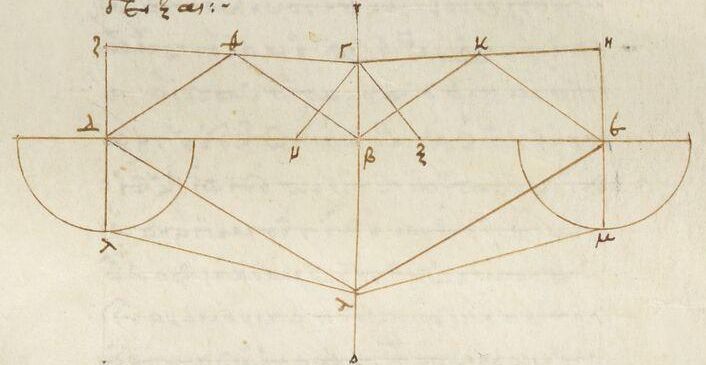 δεῖξαι:-
ζ θ Γ κ η
Δ Η β ξ ε
λ μ
γ